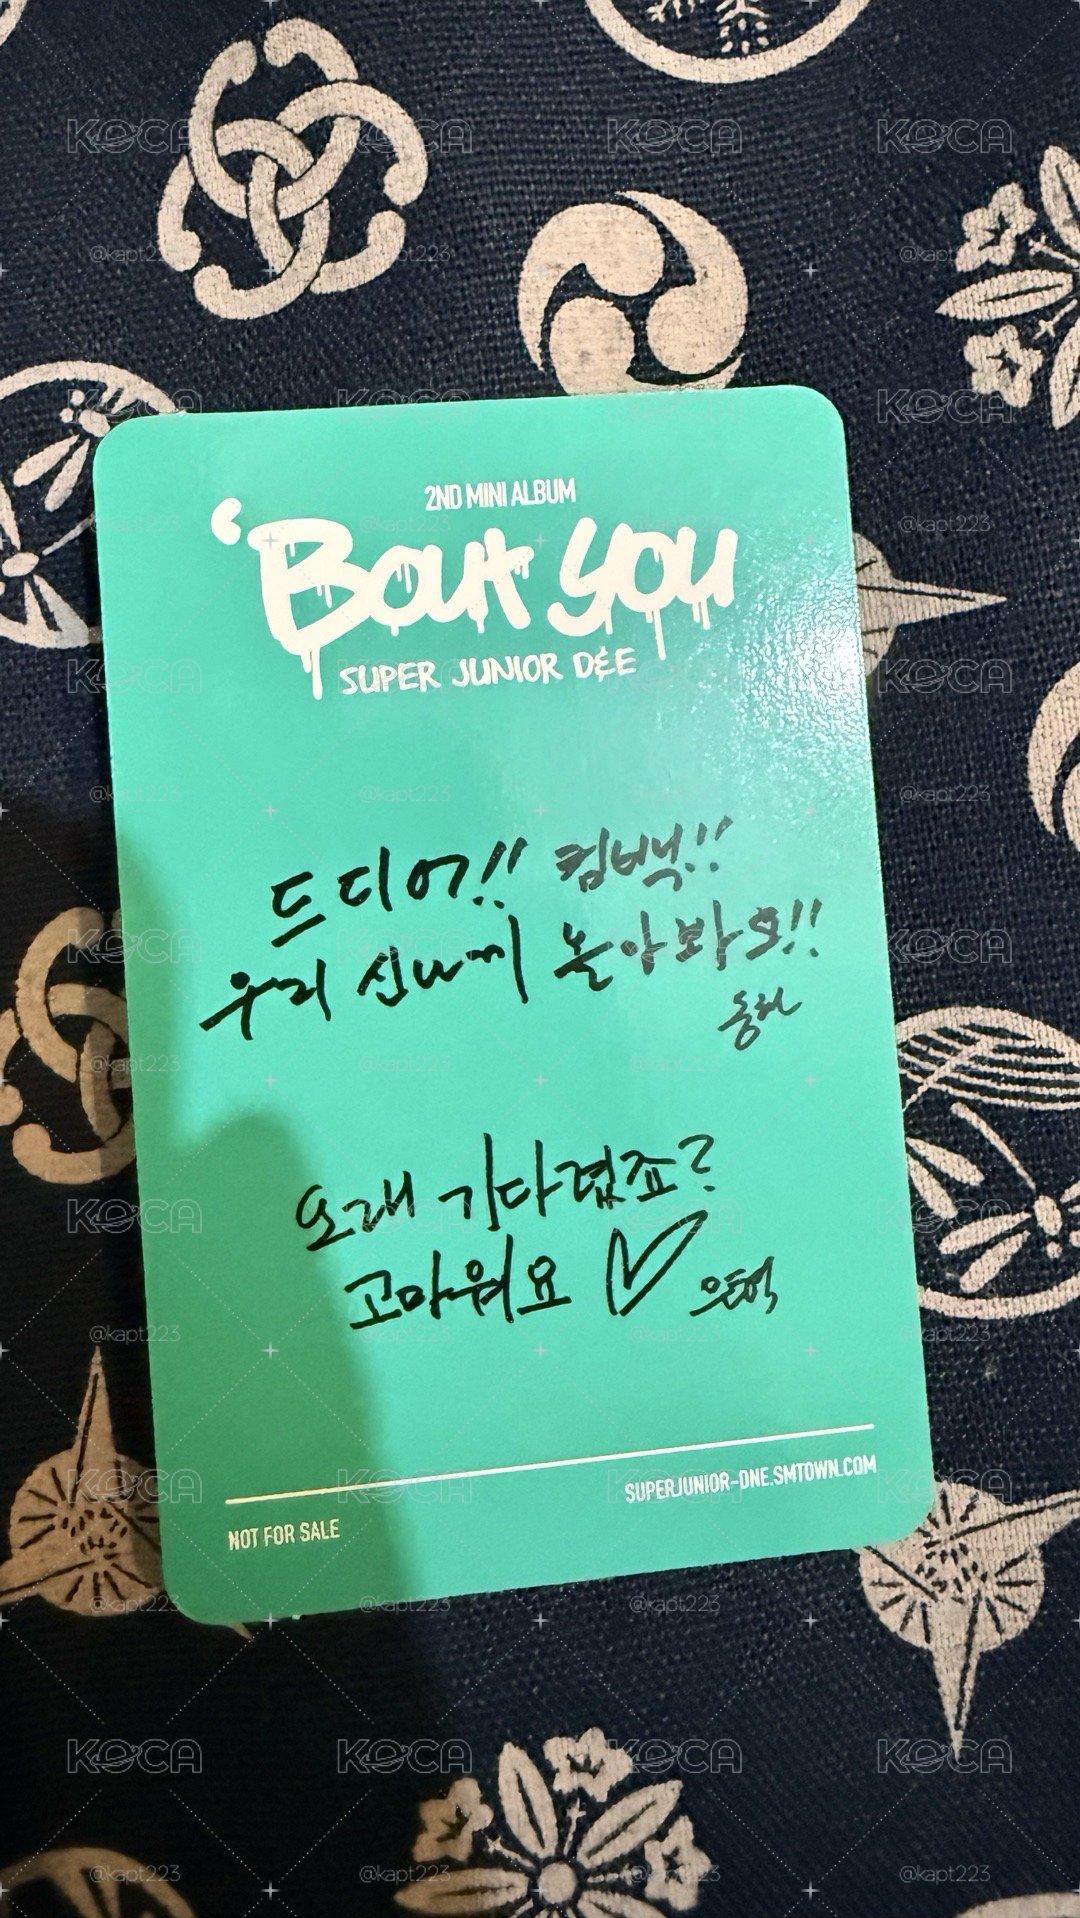 2ND MINI ALBUM
'Bout you
SUPER JUNIOR D&E
드디어!! 컴백!!
우리 신나게 놀아봐요!!
동해
오래 기다렸죠?
고마워요 ♡ 은혁
SUPERJUNIOR-DNE.SMTOWN.COM
NOT FOR SALE
KOCA
@kapt223